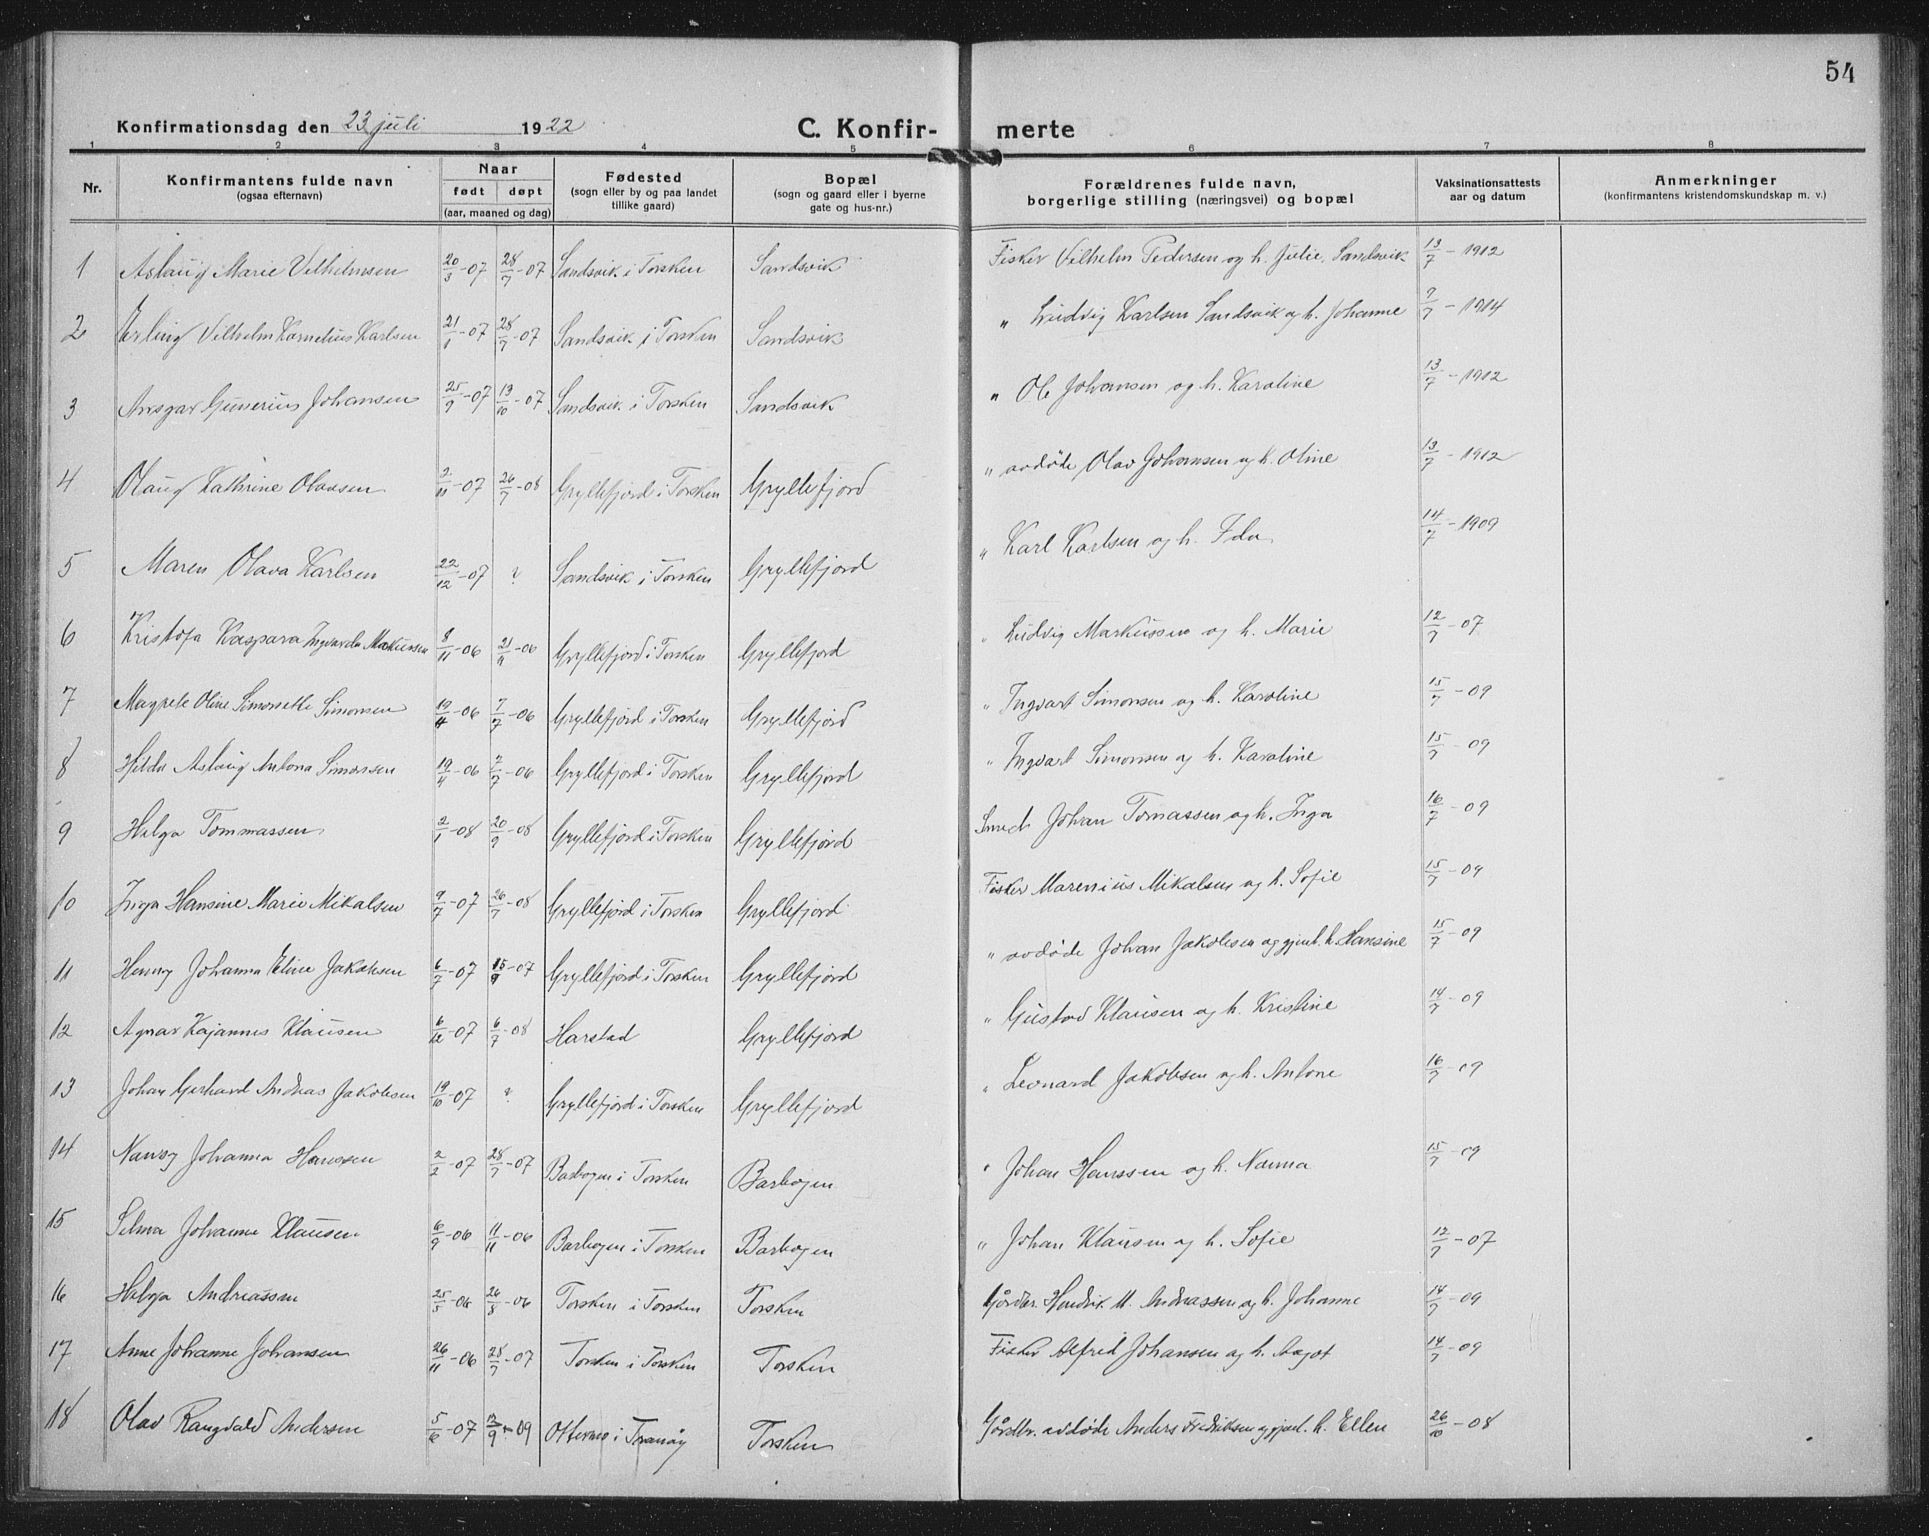 54
Konfirmationsdag den 23 juli 1922 C. Konfir- merte
1 2 3 4 5 6 7 8
Nr. Konfirmantens fulde navn (ogsaa efternavn) Naar født døpt (aar, maaned og dag) Fødested (sogn eller by og paa landet tillike gaard) Bopæl (sogn og gaard eller i byerne gate og hus-nr.) Forældrenes fulde navn, borgerlige stilling (næringsvei) og bopæl Vaksinationsattests aar og datum Anmerkninger (konfirmantens kristendomskundskap m. v.)
1 Aslaug Marie Vilhelmsen 20/3-07 28/7-07 Sandsvik i Torsken Sandsvik Fisker Vilhelm Pedersen og h. Julie, Sandsvik 13/7-1912
2 Erling Vilhelm Kornelius Karlsen 21/1-07 28/7-07 Sandsvik i Torsken Sandsvik " Ludvig Karlsen Sandsvik og h. Johanne 9/7-1914
3 Ansgar Gunerius Johansen 25/9-07 13/10-07 Sandsvik i Torsken Sandsvik " Ole Johansen og h. Karoline 13/7-1912
4 Olaug Kathrine Olavsen 2/11-07 26/7-08 Gryllefjord i Torsken Gryllefjord " avdøde Olav Johansen og h. Oline 13/7-1912
5 Maren Olava Karlsen 22/12-07 ? Sandsvik i Torsken Gryllefjord " Karl Karlsen og h. Ida 14/7-1909
6 Kristofa Kaspara Ingvarda Makussen 8/11-06 21/11-06 Gryllefjord i Torsken Gryllefjord " Ludvig Markussen og h. Marie 12/7-07
7 Magrete Oline Simonette Simonsen 19/4-06 7/7-06 Gryllefjord i Torsken Gryllefjord " Ingvart Simonsen og h. Karoline 15/7-09
8 Hilda Aslaug Antona Simonsen 19/4-06 7/7-06 Gryllefjord i Torsken Gryllefjord " Ingvart Simonsen og h. Karoline 15/7-09
9 Helga Tommassen 2/1-08 20/9-08 Gryllefjord i Torsken Gryllefjord Smed Johan Tomassen og h. Inga 16/7-09
10 Inga Hansine Marie Mikalsen 9/7-07 26/7-08 Gryllefjord i Torsken Gryllefjord Fisker Marenius Mikalsen og h. Sofie 15/7-09
11 Henny Johanna Eline Jakobsen 6/7-07 15/9-07 Gryllefjord i Torsken Gryllefjord " avdøde Johan Jakobsen og gjenl. h. Hansine 15/7-09
12 Agnar Kajannes Klausen 6/12-07 6/7-08 Harstad Gryllefjord " Gustav Klausen og h. Kristine 14/7-09
13 Johan Gerhard Andreas Jakobsen 19/10-07 ? Gryllefjord i Torsken Gryllefjord " Leonard Jakobsen og h. Antone 16/7-09
14 Nansy Johanna Hanssen 2/2-07 28/7-07 Barbogen i Torsken Barbogen " Johan Hanssen og h. Nanna 15/7-09
15 Selma Johanne Klausen 6/9-06 11/11-06 Barbogen i Torsken Barbogen " Johan Klausen og h. Sofie 12/7-07
16 Helga Andreassen 25/5-06 26/8-06 Torsken i Torsken Torsken Gårdbr. Hendrik M. Andreassen og h. Johanne 14/7-09
17 Anne Johanne Johansen 26/11-06 28/7-07 Torsken i Torsken Torsken Fisker Alfred Johansen og h. Aagot 14/7-09
18 Olav Rangvald Andersen 5/6-07 12/9-09 i Tranøy Torsken Gårdbr. avdøde Anders Fredriksen og gjenl. h. Ellen 26/10-08